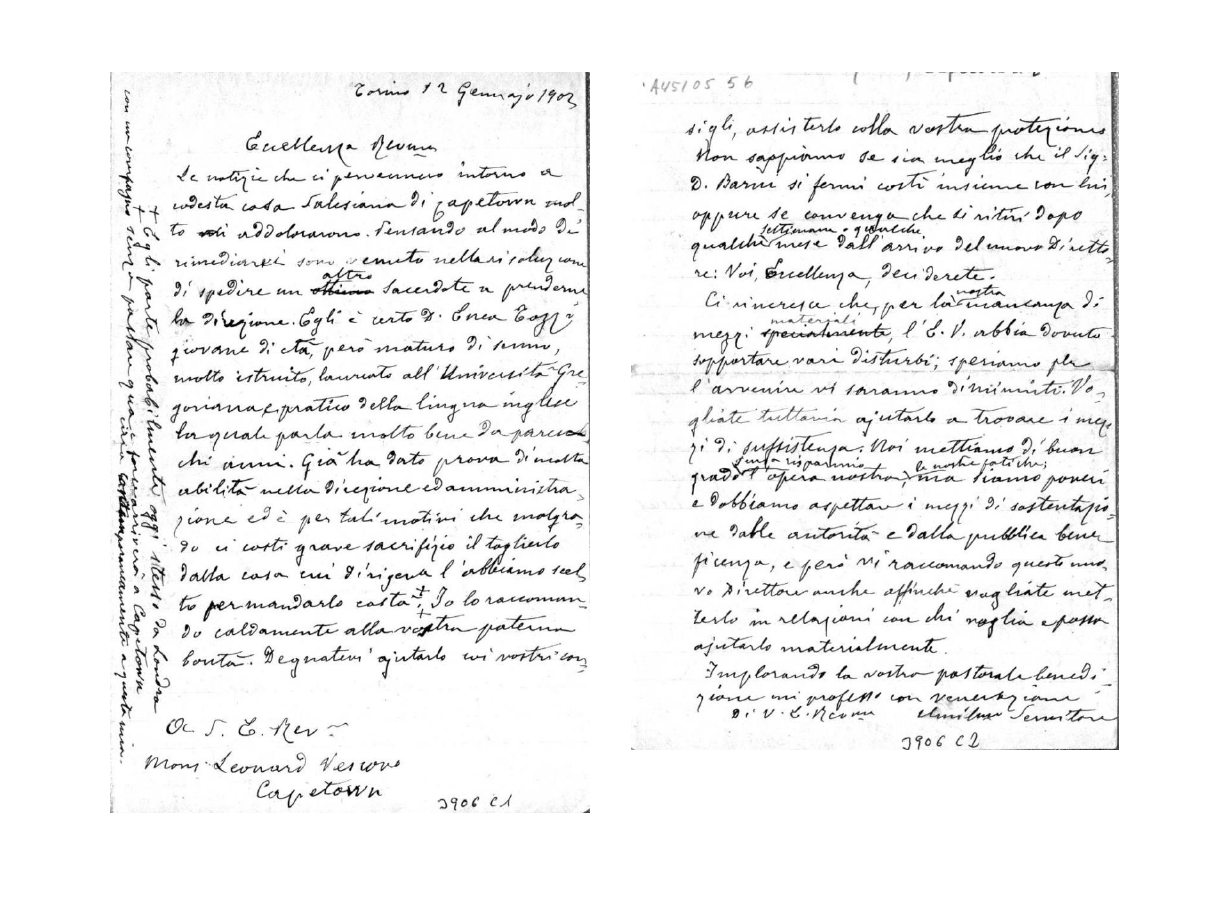 Torino 12 Gennajo 1902
Eccellenza Revma
Le notizie che ci pervennero intorno a
codesta casa Salesiana di Capetown mol-
to addolorarono. Pensando al modo di
rimediarci sono venuto nella risoluzione
di spedire un altro sacerdote a prenderne
la direzione. Egli è certo D. Enea Tozzi
giovane di età, però maturo di senno,
molto istruito, laureato all'Università Gre-
goriana e pratico della lingua inglese
la quale parla molto bene da parec-
chi anni. Già ha dato prova di molta
abilità nella direzione ed amministra-
zione ed è per tali motivi che malgra-
do ci costi grave sacrifizio il toglierlo
dalla casa cui dirigeva l'abbiamo scel-
to per mandarlo costà ‡. Io lo raccoman-
do caldamente alla vostra paterna
bontà. Degnatevi ajutarlo coi vostri con-
‡ Egli parte probabilmente oggi stesso da Londra
con un compagno senza passare qua e arriverà a Capetown
circa contemporaneamente a questa mia.
A S. E. Rev
Mons Leonard Vescovo
Capetown
3906 C1
AU5105 56
sigli, assisterlo colla vostra protezione
Non sappiamo se sia meglio che il Sig.
D. Barni si fermi costì insieme con lui,
oppure se convenga che si ritiri dopo
settimana o qualche
qualche mese dall'arrivo del nuovo Diretto-
re: Voi, Eccellenza, deciderete.
Ci rincresce che, per la nostra mancanza di
materiali
mezzi specialmente, l'E. V. abbia dovuto
sopportare vari disturbi; speriamo per
l'avvenire vi saranno diminuiti. Vo-
gliate tuttavia ajutarlo a trovare i mez-
zi di sussistenza. Noi mettiamo di buon
senza risparmio le nostre fatiche;
grado l'opera nostra, ma siamo poveri
e dobbiamo aspettare i mezzi di sostentazio-
ne dalle autorità e dalla pubblica bene-
ficenza, e però vi raccomando questo nuo-
vo Direttore anche affinchè vogliate met-
terlo in relazioni con chi voglia e possa
ajutarlo materialmente.
Implorando la vostra pastorale benedi-
zione mi professo con venerazione
Di V. E. Revma Umilmo Servitore
3906 C2